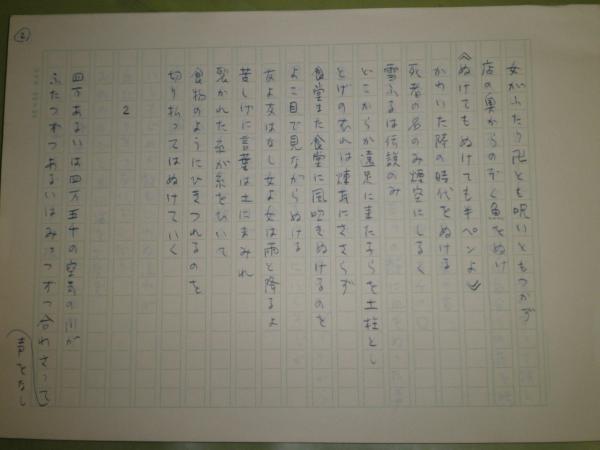 ②
女がふたり卍とも呪いともつかず
店の奥からのぞく魚をぬけ
《ぬけてもぬけてもキペンよ》
かわいた陸の時代をぬける
死者の名のみ煙空にしるく
雪ふるは伝説のみ
どこからか遠足に来た子らを土柱とし
とげの衣れは煉瓦にささらず
食堂また食堂に風吹きぬけるのを
よこ目で見ながらぬける
女よ女はなし女よ女は雨と降るよ
苦しげに言葉は土にまみれ
裂かれた豆が糸をひいて
食物のようにひきつれるのを
切り払ってはぬけていく
2
四万あるいは四万五千の空_の_が
ふたつずつあるいはみっつずつ合わさって
(音をなし